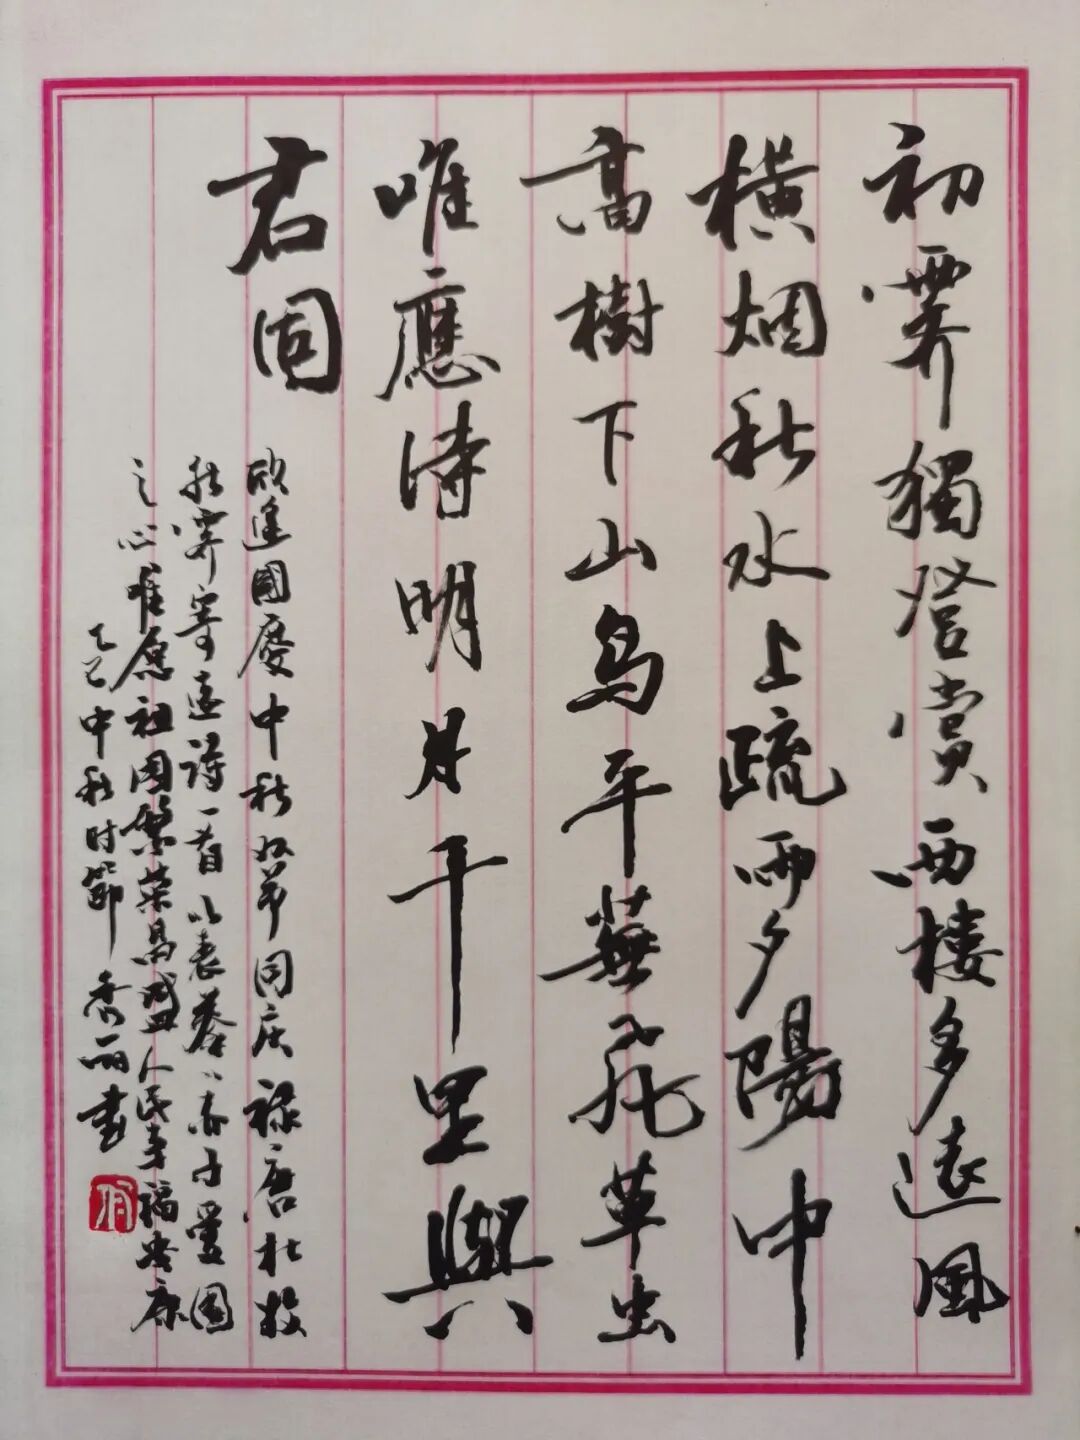 初霽獨登賞西樓多遠風
橫烟秋水上疏雨夕陽中
高樹下山鳥平蕪飛草虫
唯應待明月千里與
君同
欣逢國慶中秋双节同庆禄唐杜牧
秋霁寄远詩一首以表拳拳赤子愛国
之心唯愿祖国繁荣昌盛人民幸福安康
乙巳中秋时節秀丽書